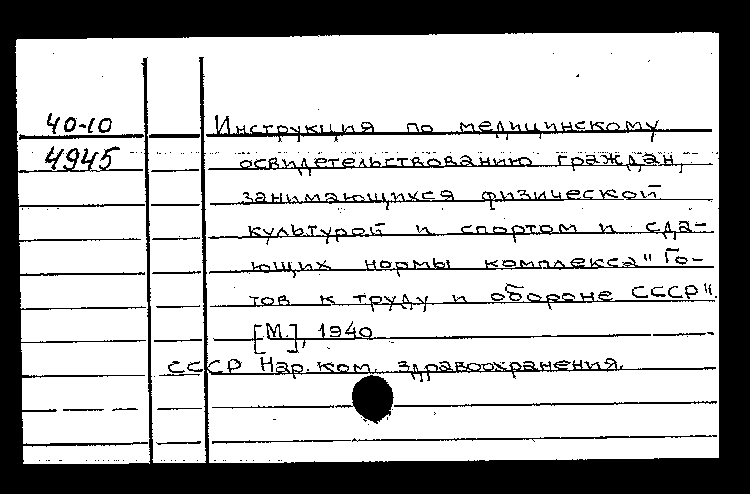 40-10 Инструкция по медицинскому
4945 освидетельствованию граждан,
занимающихся физической
культурой и спортом и сда-
ющих нормы комплекса "Го-
тов к труду и обороне СССР".
[М.], 1940
СССР Нар. ком. здравоохранения.